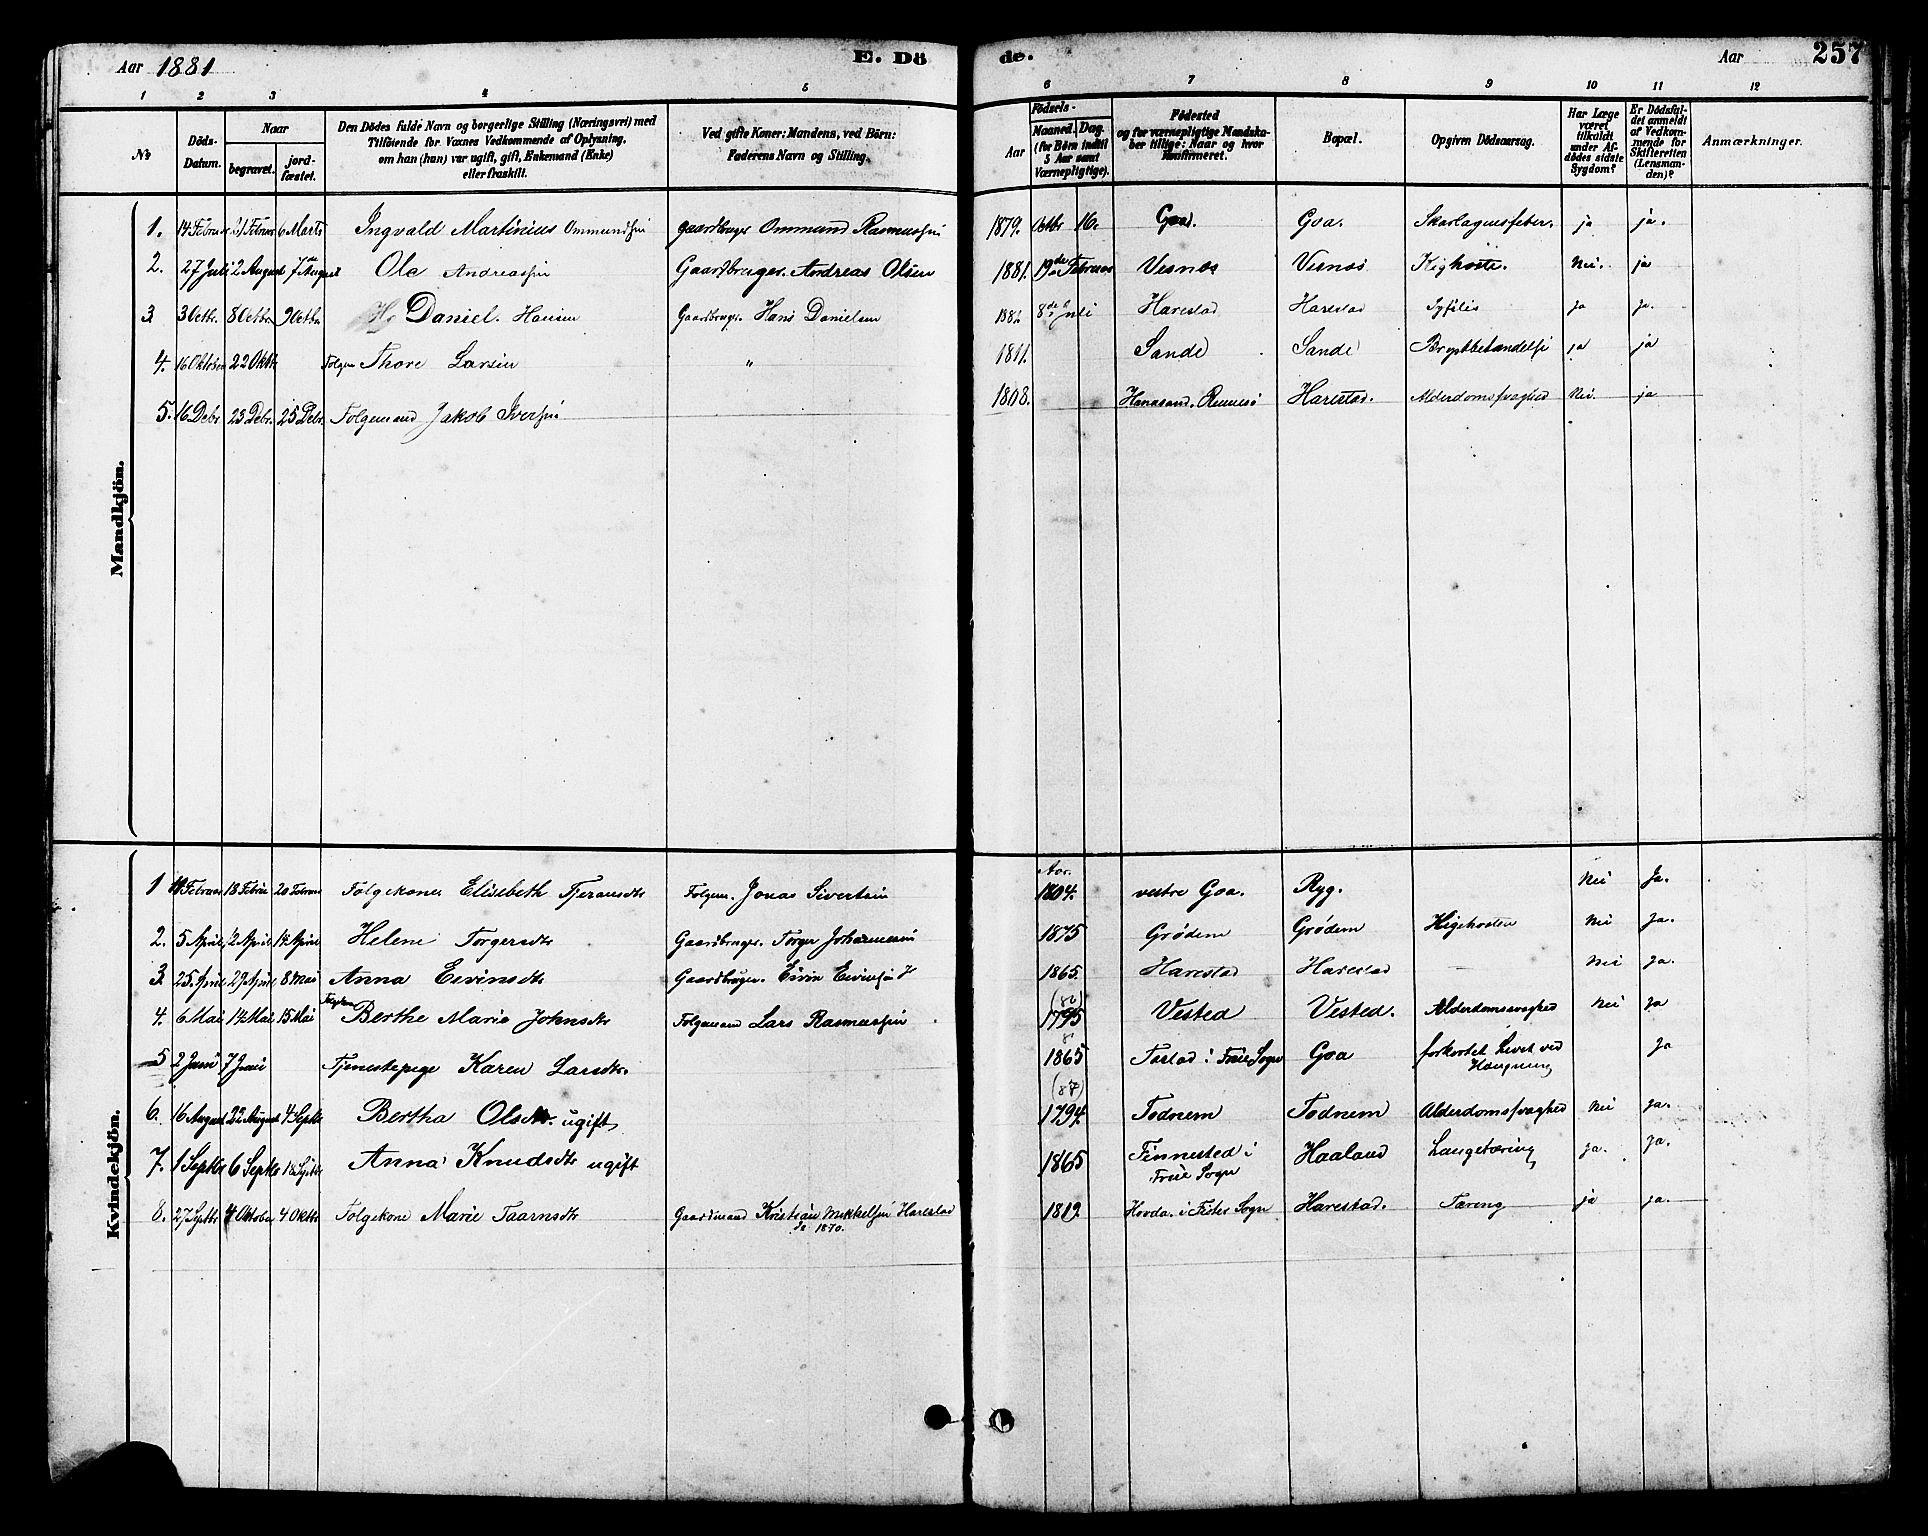 Aar 1881 E. Dö de. Aar 257
1 2 3 4 5 6 7 8 9 10 11 12
No Döds-Datum. Naar begravet. jordfæstet. Den Dödes fulde Navn og borgerlige Stilling (Næringsvei) med Tilföiende for Voxnes Vedkommende af Oplysning, om han (hun) var ugift, gift, Enkemand (Enke) eller fraskilt. Ved gifte Koner: Mandens, ved Börn: Faderens Navn og Stilling. Aar Födsels- Maaned. Dag. (for Börn indtil 5 Aar samt Værnepligtige). Födested og for værnepligtige Mandskaber tillige: Naar og hvor Konfirmeret. Bopæl. Opgiven Dödsaarsag. Har Læge været tilkaldt under Afdödes sidste Sygdom? Er Dödsfaldet anmeldt af Vedkommende for Skifteretten (Lensmanden)? Anmærkninger.
Mandkjön.
1. 14 Februar 21 Februar 6 Marts Ingvald Martinius Ommundsen Gaardbruger Ommund Rasmussen 1879. Octbr 16. Goa. Goa. Skarlagensfeber. ja ja.
2. 27 Juli 2 August 7de August Ole Andreassen Gaardbruger. Andreas Olsen 1881. 19de Februar Vesnes Vesnes Kighoste. Nei. ja
3 3 Octr. 8 Octbr. 9 Octbr Daniel. Hansen Gaardbruger. Hans Danielsen 1881 8de Juli Harestad Harestad Syfilis ja ja.
4. 16 Oktober 22 Oktbr Folgem Thore Larsen " 1811. Sande Sande Brystbetændelse ja ja
5. 16 Debr. 23 Debr. 25 Debr. Folgemand Jakob Iversen 1808. Hanasand. Rennesö Harestad. Alderdomssvaghed Nei. ja
Kvindekjön.
1 Februar 18 Februar 20 Februar Folgekone Elisebeth Tjeransdtr Folgem. Jonas Sivertsen Aar. 1804. vestre Goa. Ryg. Nei Ja.
2. 5 April 12 April 14 April Helene Torgersdtr Gaardbruger. Torger Johannesen 1875 Grødem Grødem Kighosten Nei Ja.
3. 25 April 29 April 8 Mai Anna Eivinsdtr Gaardbruger. Eivin Eivinsen H 1865. Harestad Harestad — Nei Ja.
4. 6 Mai 14 Mai 15 Mai Folgekone Berthe Marie Johnsdtr Folgemand Lars Rasmussen (86) 1795 Vested Vested. Alderdomssvaghed Nei ja
5 2 Juni 7 Juni Tjenestepige Karen Larsdtr. 1865 Tastad i Frue Sogn Goa forkortet Livet ved Hængning Ja
6. 16 August 22 August 4 Septbr Bertha Olsdtr. ugift (87) 1794. Todnem Todnem Alderdomssvaghed Nei Ja.
7. 1 Septbr 6 Septbr 18 Septbr Anna Knudsdtr ugift 1865 Finnested i Frue Sogn Haaland Lungetæring ja. ja.
8. 27 Septbr 4 Oktober 4 Oktbr Folgekone Marie Taarnsdtr Gaardmand Kristian Mikkelsen Harestad 1870. 1812. Hovda. i Fister Sogn Harestad. Tæring ja ja.